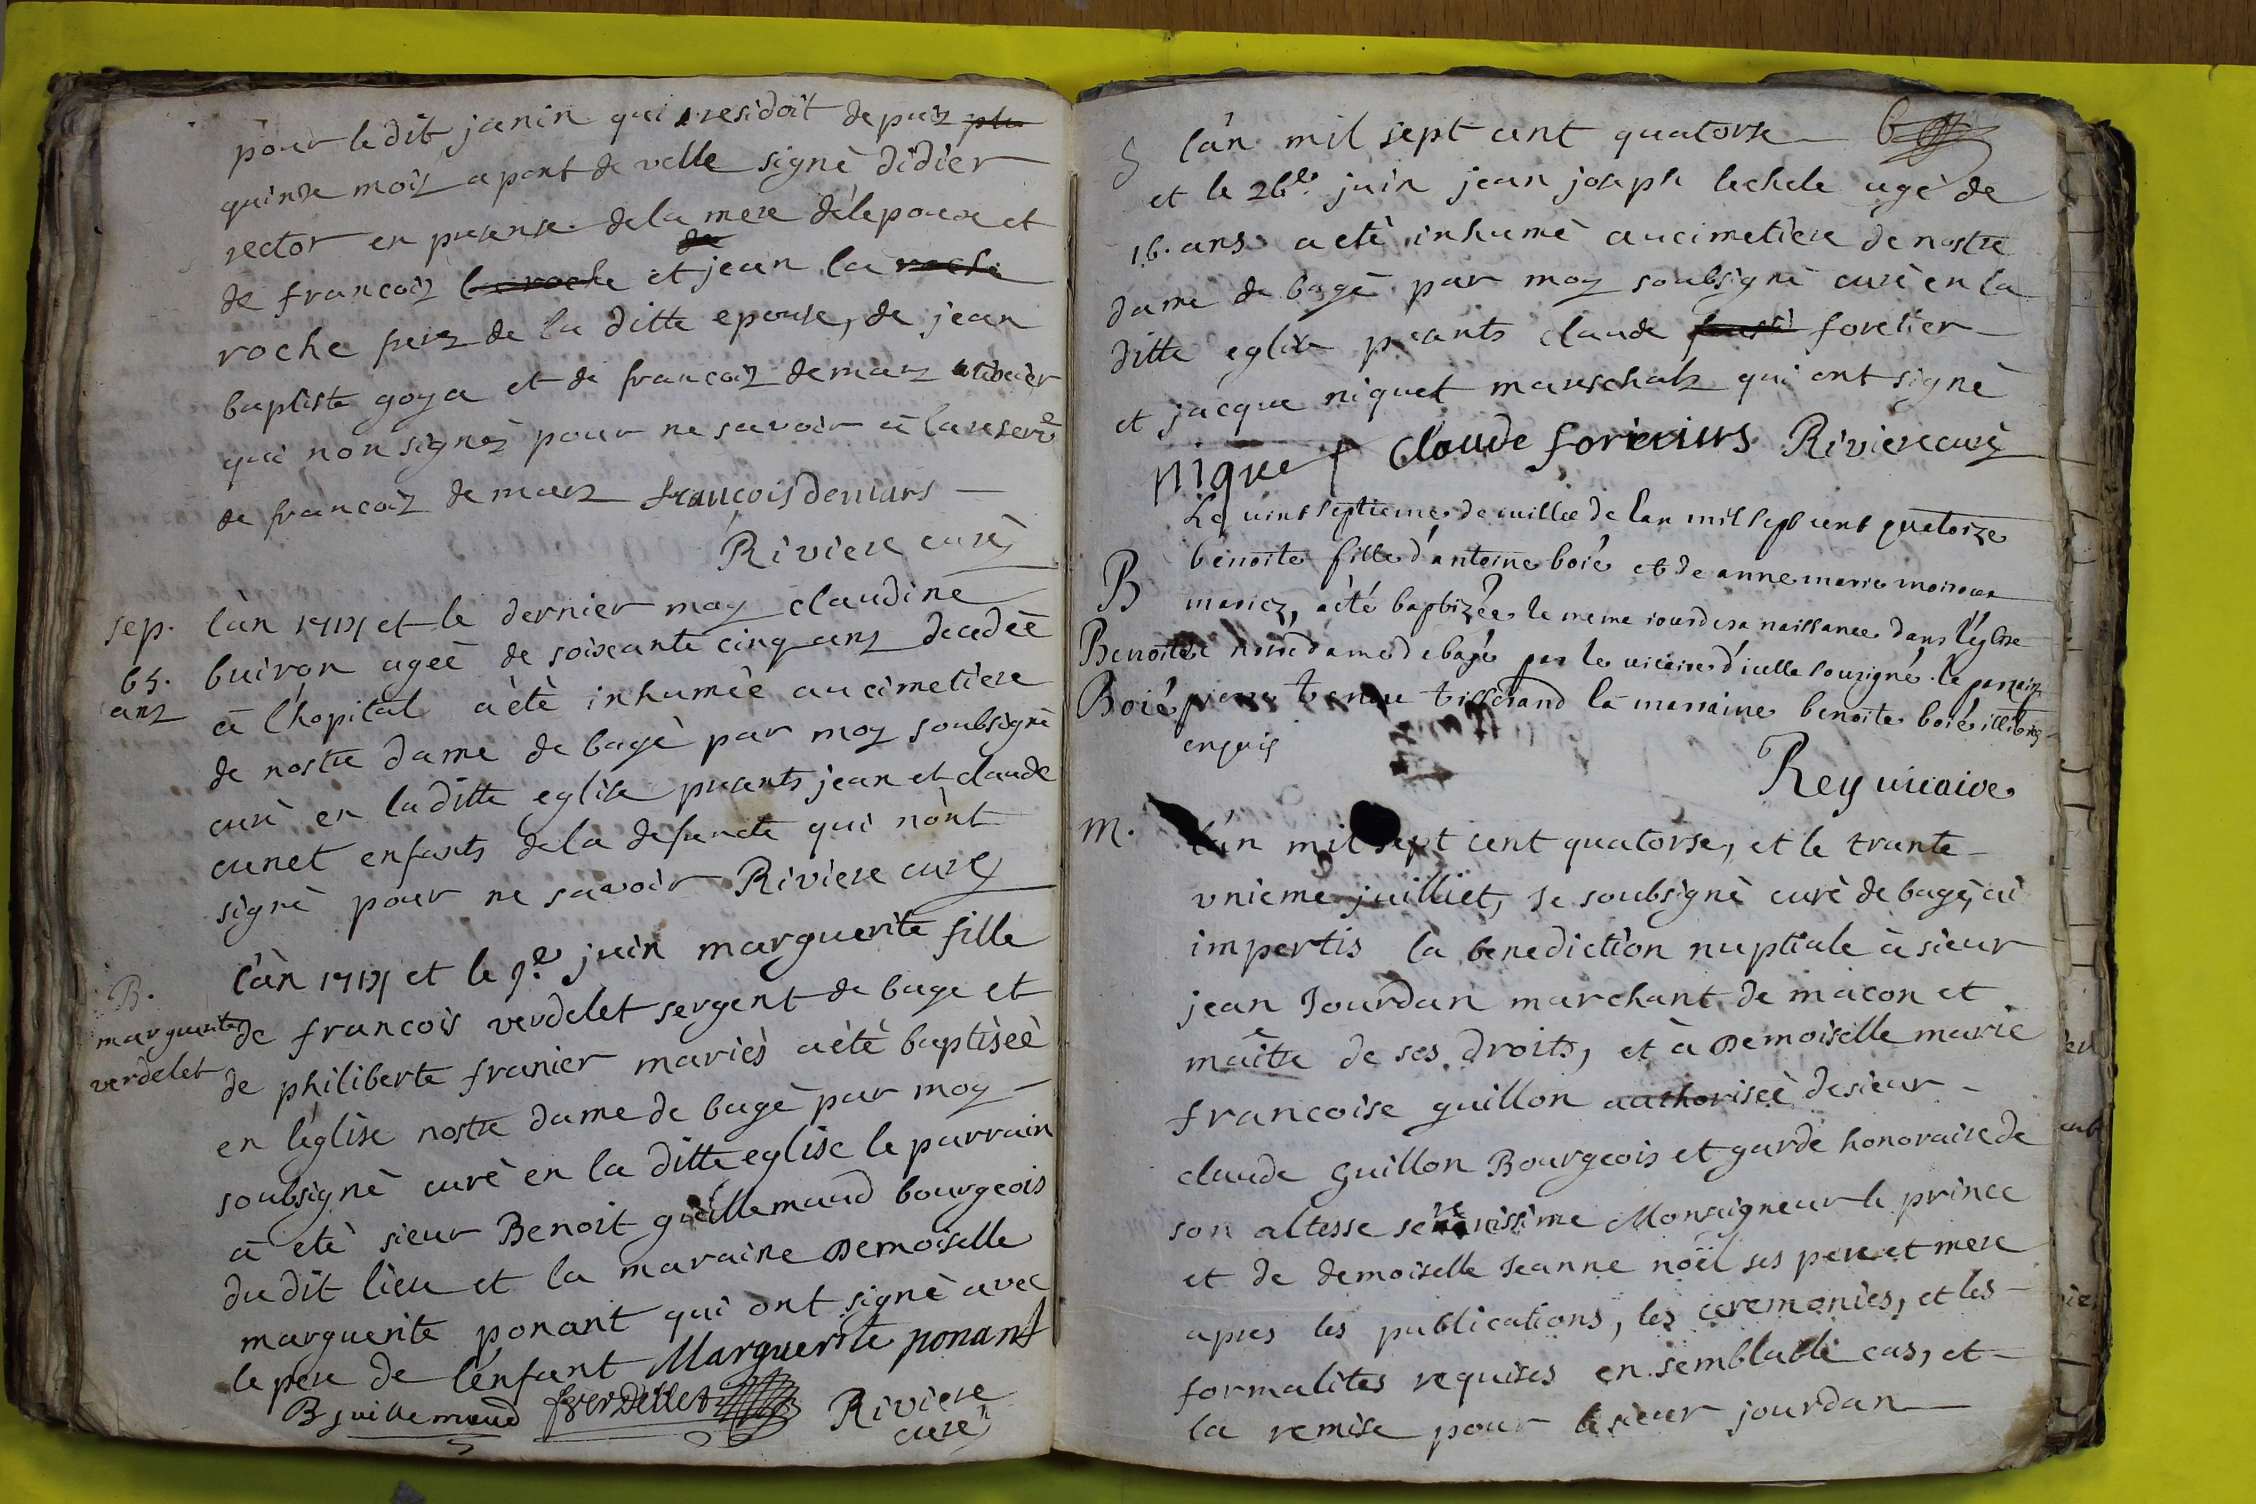 pour le dit janin qui residoit depuiz plu
quinze moiz a pont de velle signè didier
rector en presense de la mere de lepouse et
de francoiz la roche et jean la roche
roche frerz de la ditte epouse, de jean
baptiste goya et de francoiz demarz
qui non signèz pour ne savoir â la reserve
de francoiz de marz françois demars
Riviere curè
sep. l'an 1714 et le dernier may claudine
65. buiron ageè de soixante cinq anz decedèè
anz â l'hopital àetè inhumèè au cimetiere
de nostre dame de bagè par moy soubsignè
curè en la ditte eglise presents jean et claude
cunet enfants de la defuncte qui nònt
signè pour ne savoir Riviere curè
B. l'àn 1714 et le 9.e juin marguerite fille
marguerite de francois verdelet sergent de bage et
verdelet de philiberte franier mariès àetè baptisèè
en l'eglise nostre dame de bagè par moy
soubsignè curè en la ditte eglise le parrain
â etè sieur Benoit guillemaud bourgeois
du dit lieu et la maraine Demoiselle
marguerite ponant qui ont signè avec
le pere de l'enfant Marguerite ponant
B guillemaud fverdellet Riviere
curè
S l'àn mil sept cent quatorse 6
et le 26.e juin jean joseph lechele agè de
16. ans a etè inhumè au cimetiere de nostre
dame de bagè par moy soubsignè curè en la
ditte eglise presents claude foretier
et jacque niquet mareschalz qui ont signè
niquet Claude foritiurs Riviere curè
Le vint septieme de iuillie de lan mil sept cent quatoize
B benoite fille d'antoine boié et de anne marie
mariez, àeté baptizée le meme iour de sa naissance dans l'eglise
Benoite notre dame de bagé par le vicaire d'icelle souzigné. le parrain
Boié pierre tisserand la marraine benoite boié illitres
enquis
Rey vicaire
m. l'àn mil sept cent quatorse, et le trante
vnieme juilliet, Je soubsignè curè de bagè, ai
impertis la benediction nuptiale à sieur
jean Jourdan marchant de mâcon et
maître de ses droits, et à Demoiselle marie
francoise guillon authorisèè de sieur
claude Guillon Bourgeois et garde honoraire de
son altesse serenissime Monseigneur le prince
et de demoiselle Jeanne noël ses pere et mere
apres les publications, les ceremonies, et les
formalites requises en semblable cas, et
la remise pour le sieur jourdan